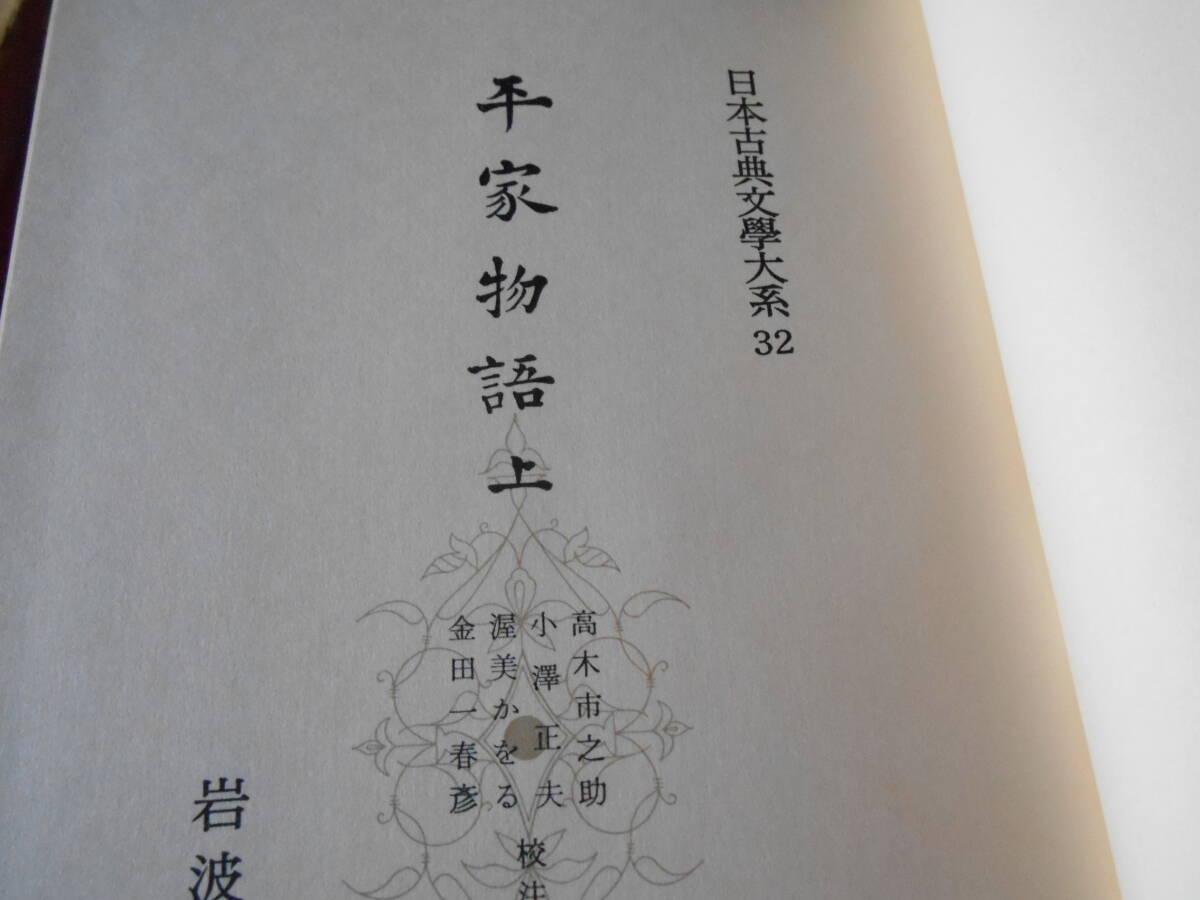 日本古典文學大系 32
平家物語 上
高木市之助
小澤正夫
渥美かをる
金田一春彥
校注
岩波